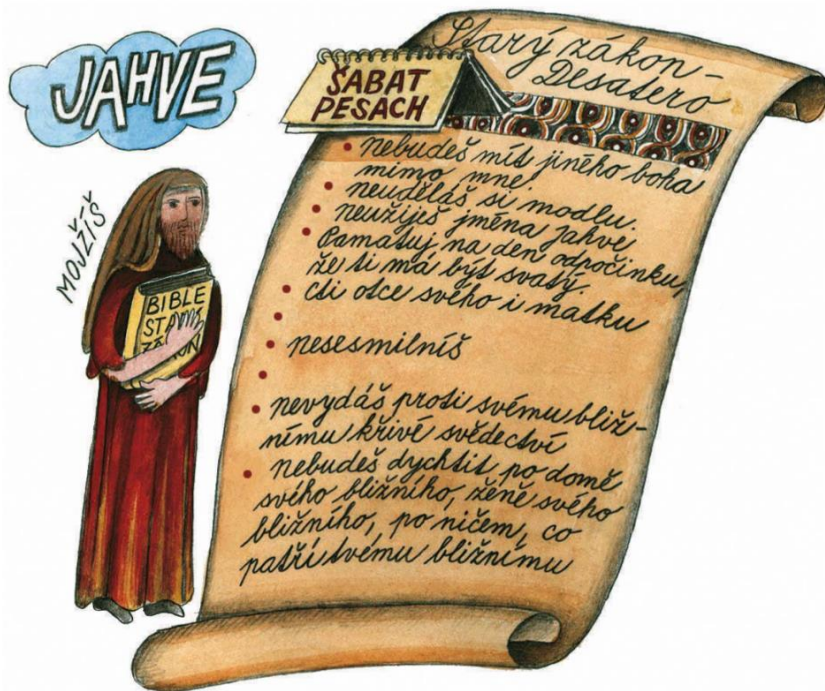 JAHVE
ŠABAT
PESACH
Starý zákon -
Desatero
MOJŽÍŠ
BIBLE
• nebudeš mít jiného boha
mimo mne.
• neuděláš si modlu.
• neužiješ jména Jahve
• Pamatuj na den odpočinku,
že ti má být svatý.
• cti otce svého i matku
•
• nesesmilníš
•
• nevydáš proti svému bliž-
nímu křivé svědectví
• nebudeš dychtit po domě
svého bližního, ženě svého
bližního, po ničem, co
patří tvému bližnímu